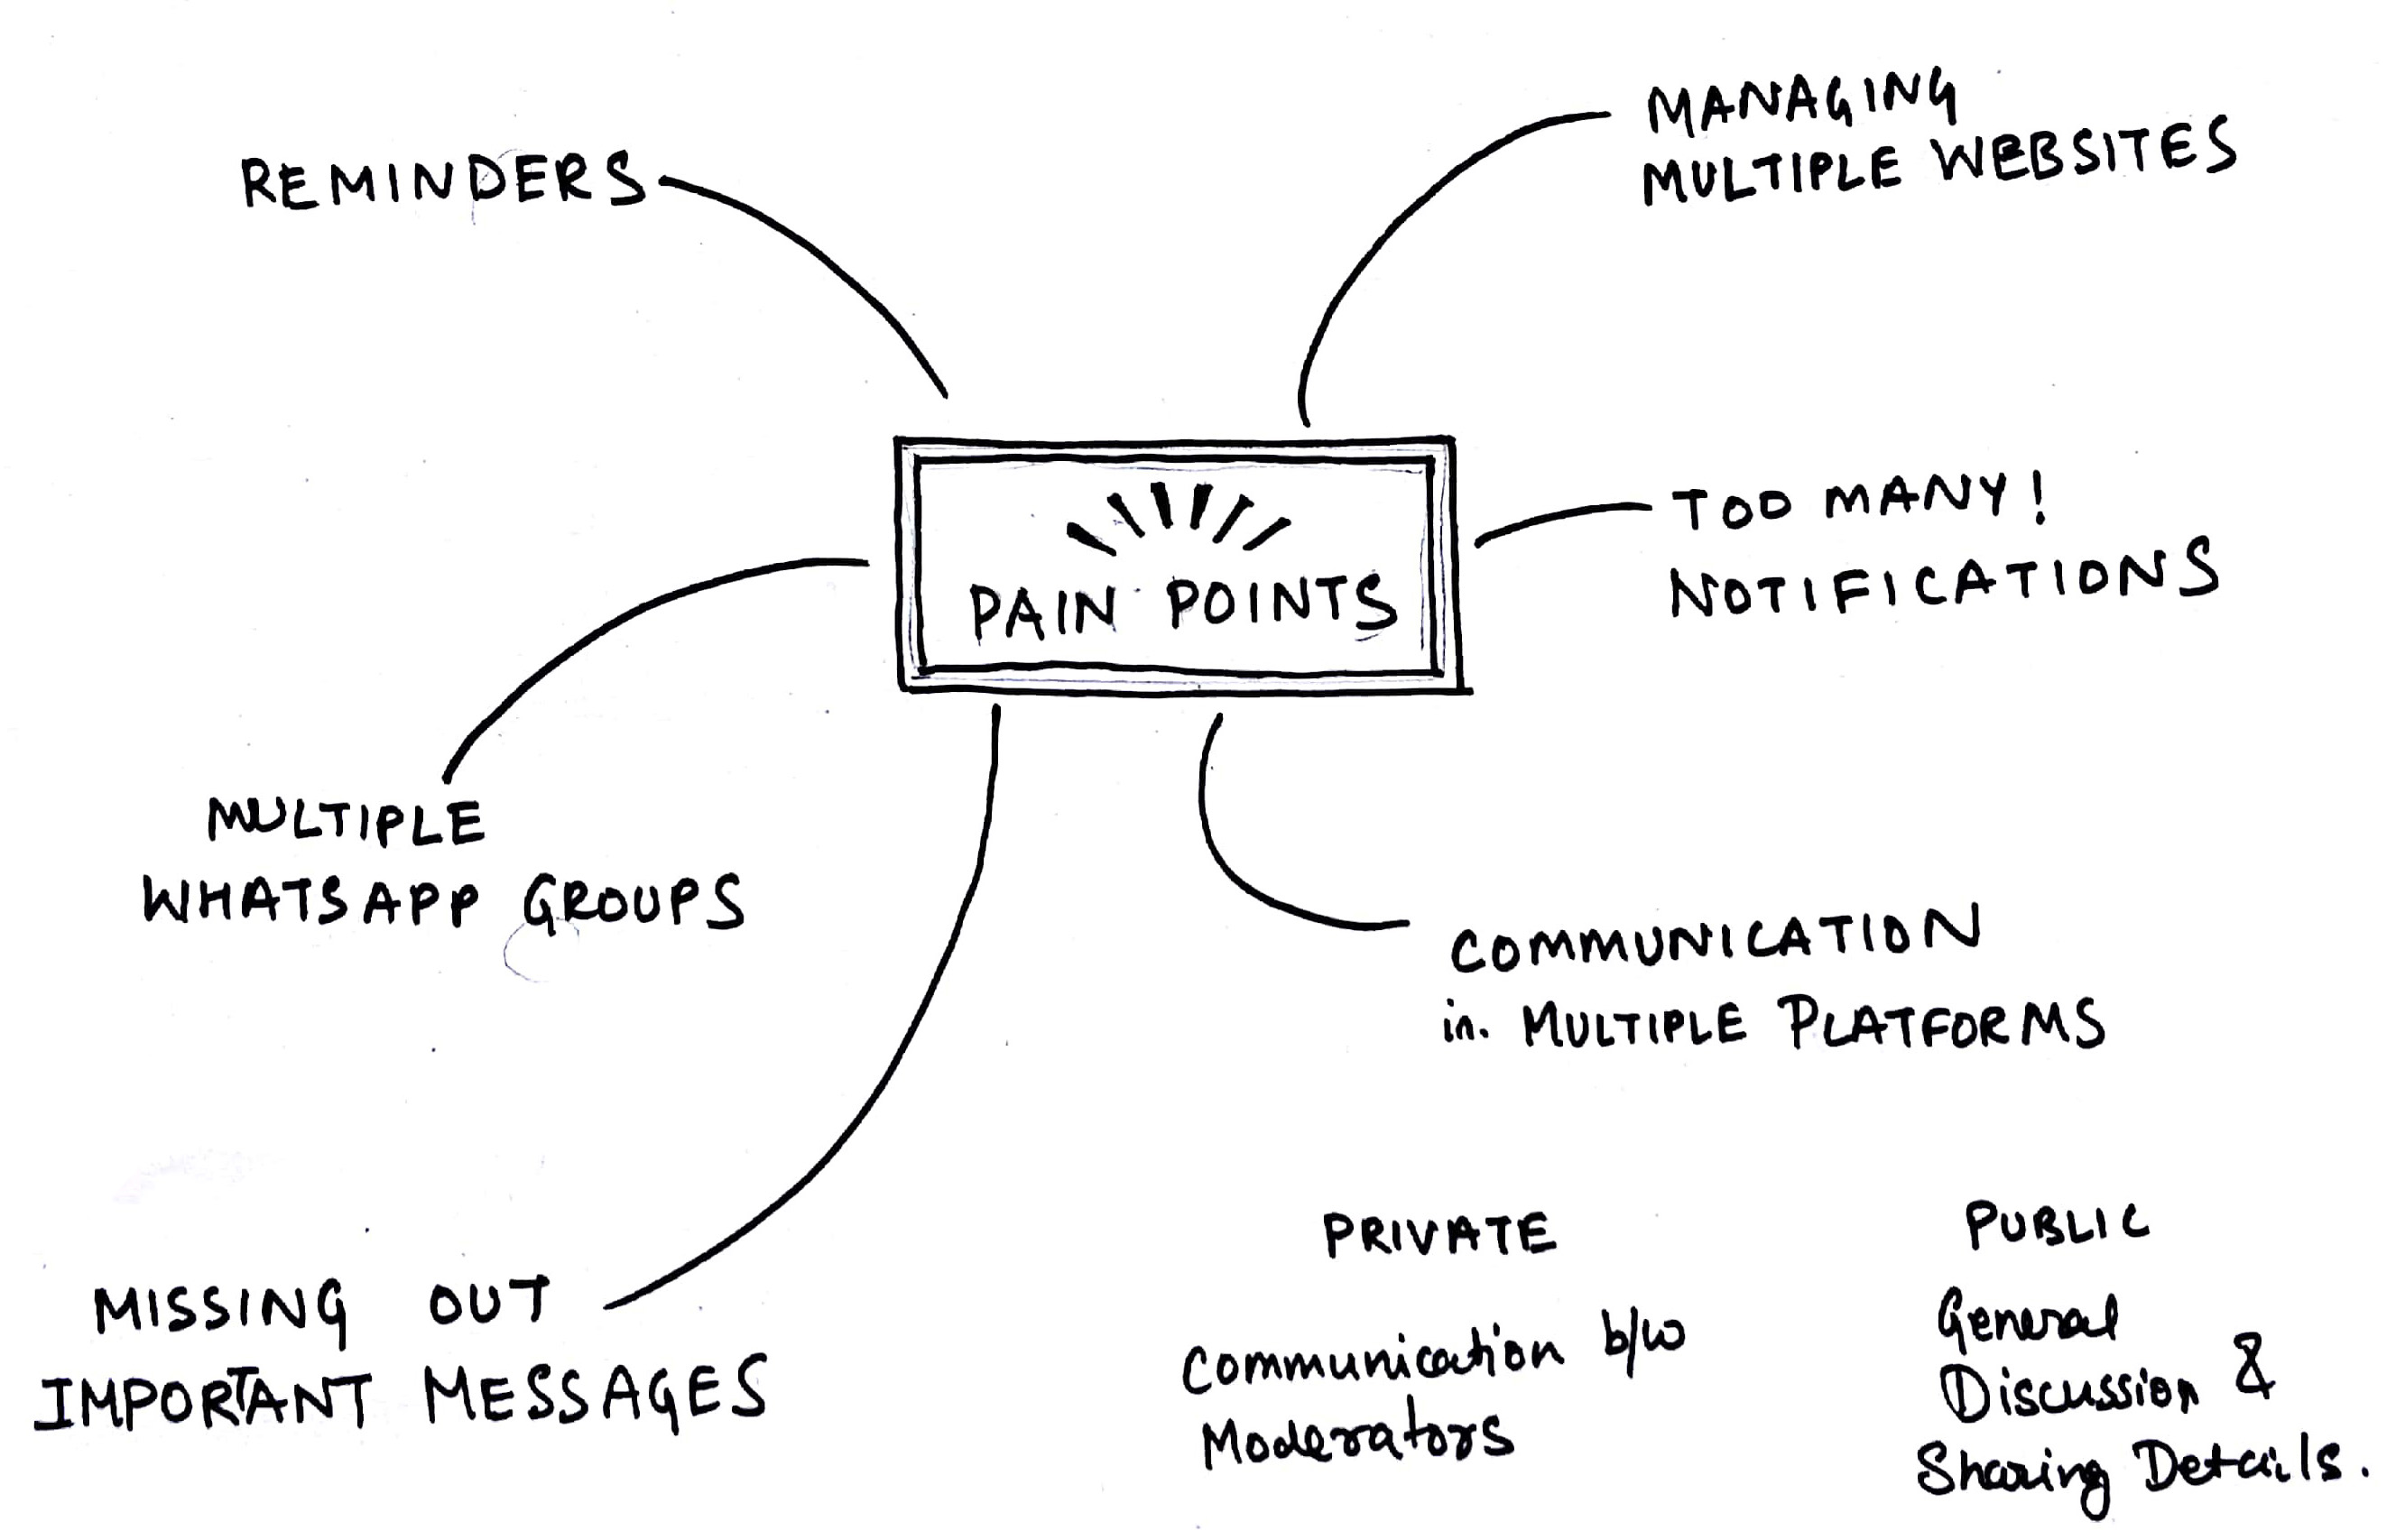 REMINDERS
MANAGING
MULTIPLE WEBSITES
TOO MANY!
NOTIFICATIONS
PAIN POINTS
MULTIPLE
WHATSAPP GROUPS
COMMUNICATION
in. MULTIPLE PLATFORMS
MISSING OUT
IMPORTANT MESSAGES
PRIVATE
Communication b/w
Moderators
PUBLIC
General
Discussion &
Sharing Details.